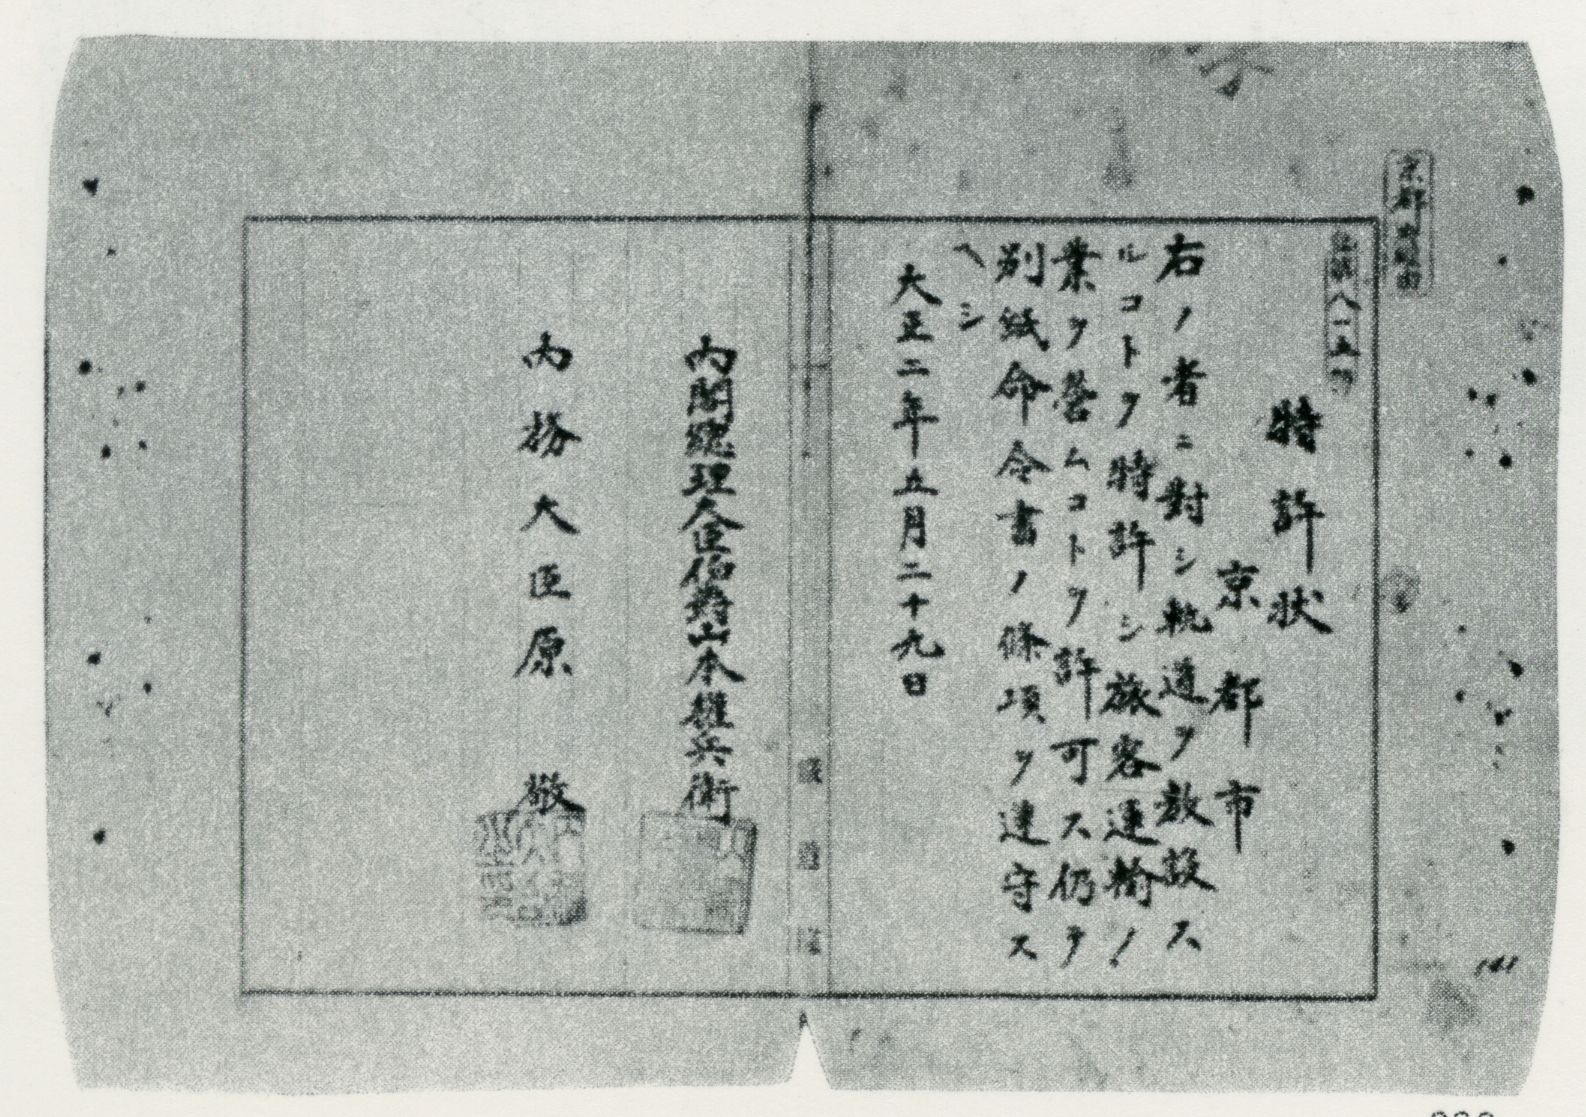 特許狀
京都市
右ノ者ニ對シ軌道ヲ敷設ス
ルコトヲ特許シ旅客運輸ノ
業ヲ營ムコトヲ許可ス仍テ
別紙命令書ノ條項ヲ遵守ス
ヘシ
大正二年五月二十九日
內閣總理大臣伯爵山本權兵衛
內務大臣原 敬